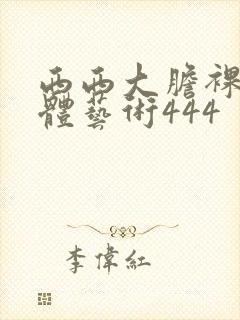 西西大膽裸
體藝術444
李偉紅